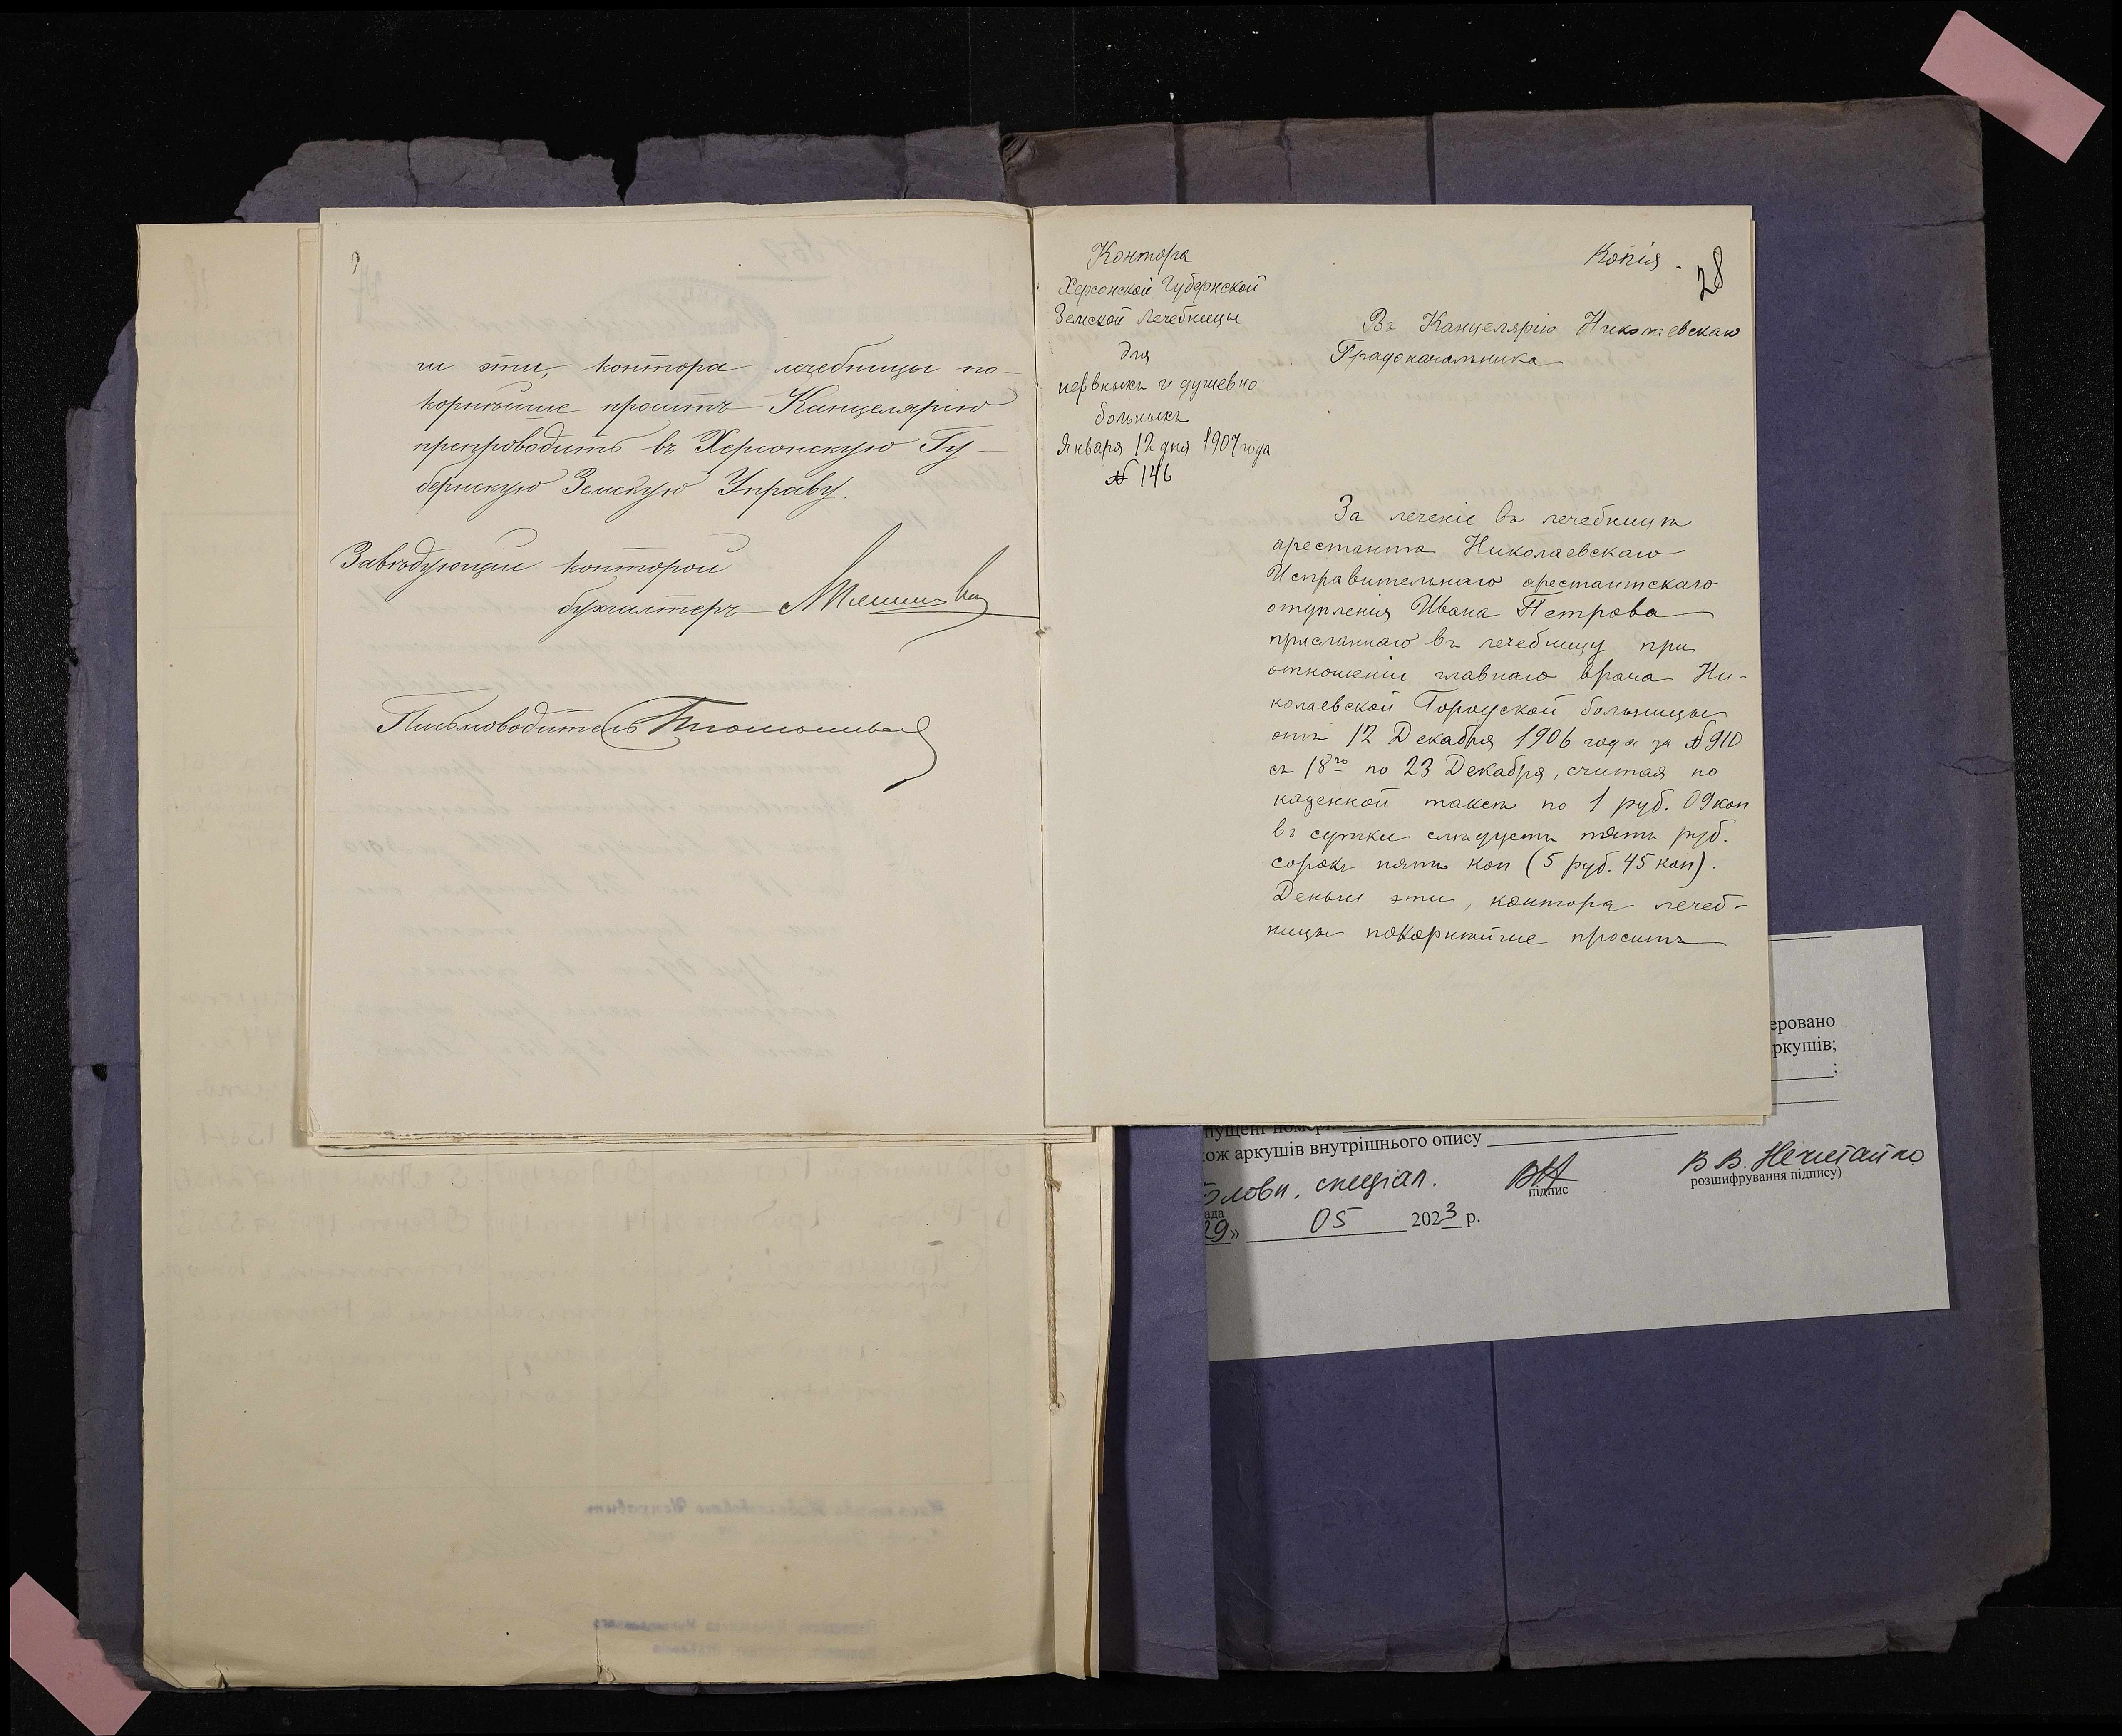 ги эти, контора лечебницы по-
корнѣйше проситъ Канцелярію
препроводить въ Херсонскую Гу-
бернскую Земскую Управу.
Завѣдующій конторой
бухгалтеръ
Письмоводитель
Контора
Херсонской Губернской
Земской Лечебницы
для
нервныхъ и душевно
больныхъ
Января 12 дня 1907 года
№ 146
Копія.
28
Въ Канцелярію Николаевскаго
Градоначальника
За леченіе въ лечебницѣ
арестанта Николаевскаго
Исправительнаго арестантскаго
отдѣленія Ивана Петрова
присланнаго въ лечебницу при
отношеніи главнаго врача Ни-
колаевской Городской больницы
отъ 12 Декабря 1906 года за № 910
съ 18го по 23 Декабря, считая по
казенной таксѣ по 1 руб. 09 коп
въ сутки слѣдуетъ пять руб.
сорокъ пять коп (5 руб. 45 коп).
Деньги эти, контора лечеб-
ницы покорнѣйше проситъ
еровано
ркушів;
;
пущені номери
ож аркушів внутрішнього опису
Голови. спеціал.
підпис
В В. Нечитайло
розшифрування підпису)
ада
29» 05 2023 р.